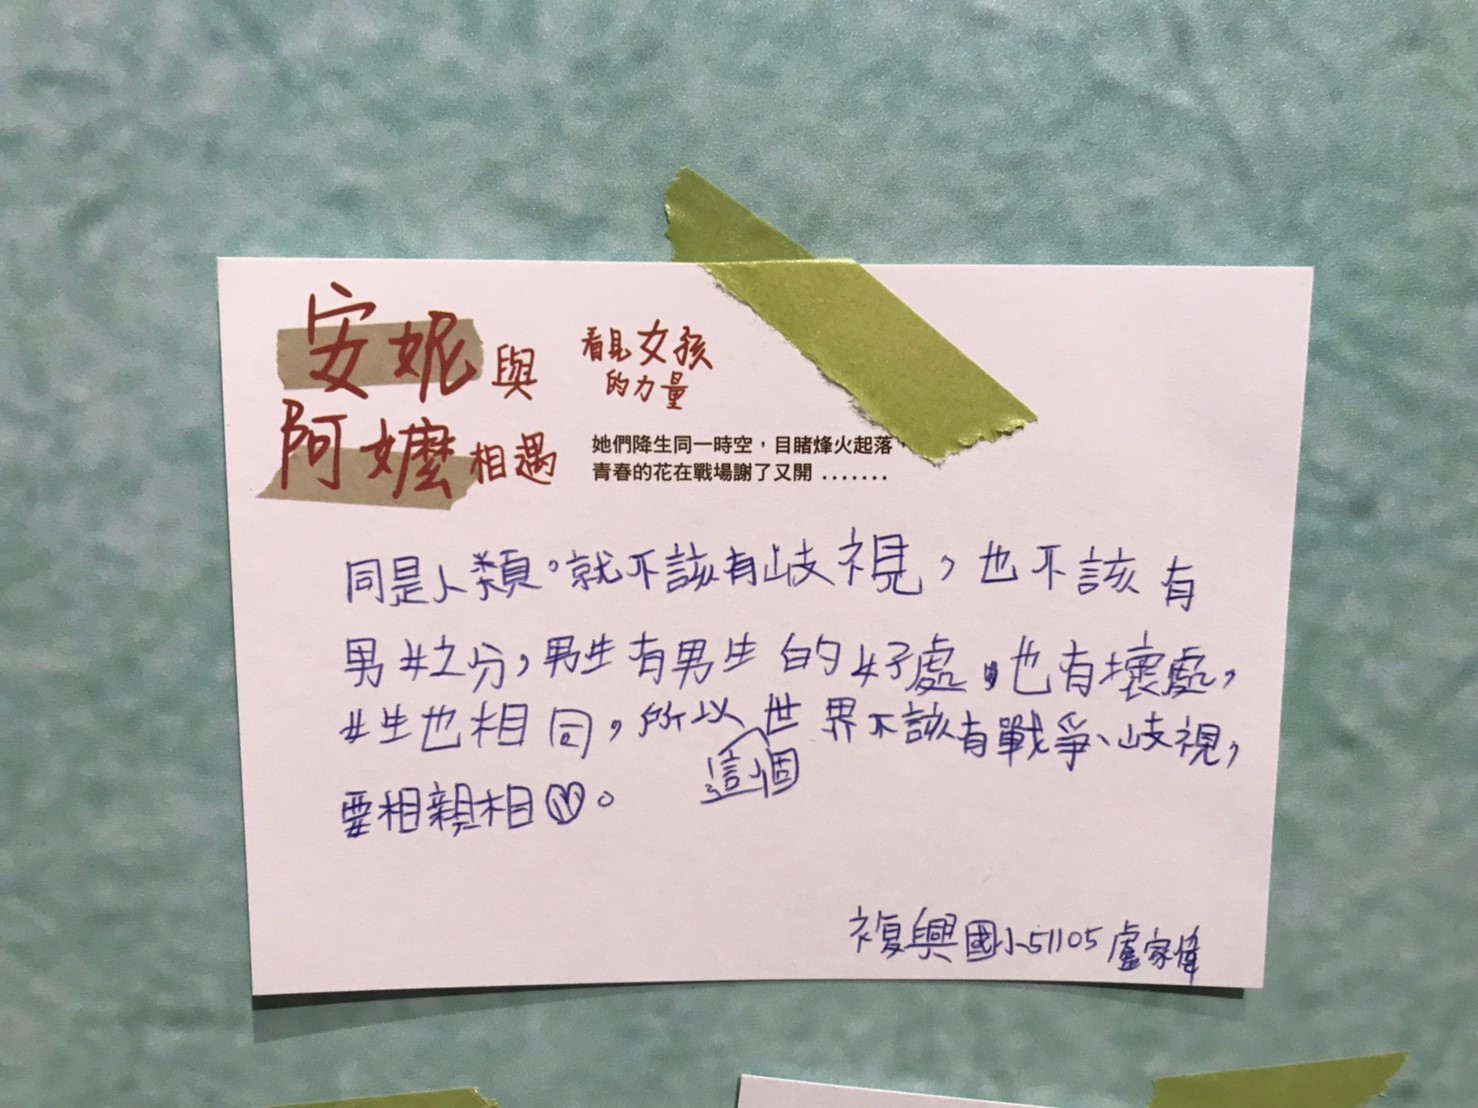 安妮與
阿嬤相遇
看見女孩
的力量
她們降生同一時空，目睹烽火起落，
青春的花在戰場謝了又開 .......
同是人類。就不該有歧視，也不該有
男女之分，男生有男生的好處，也有壞處，
女生也相同，所以這個世界不該有戰爭、歧視，
要相親相♡。
複興國小51105盧家偉